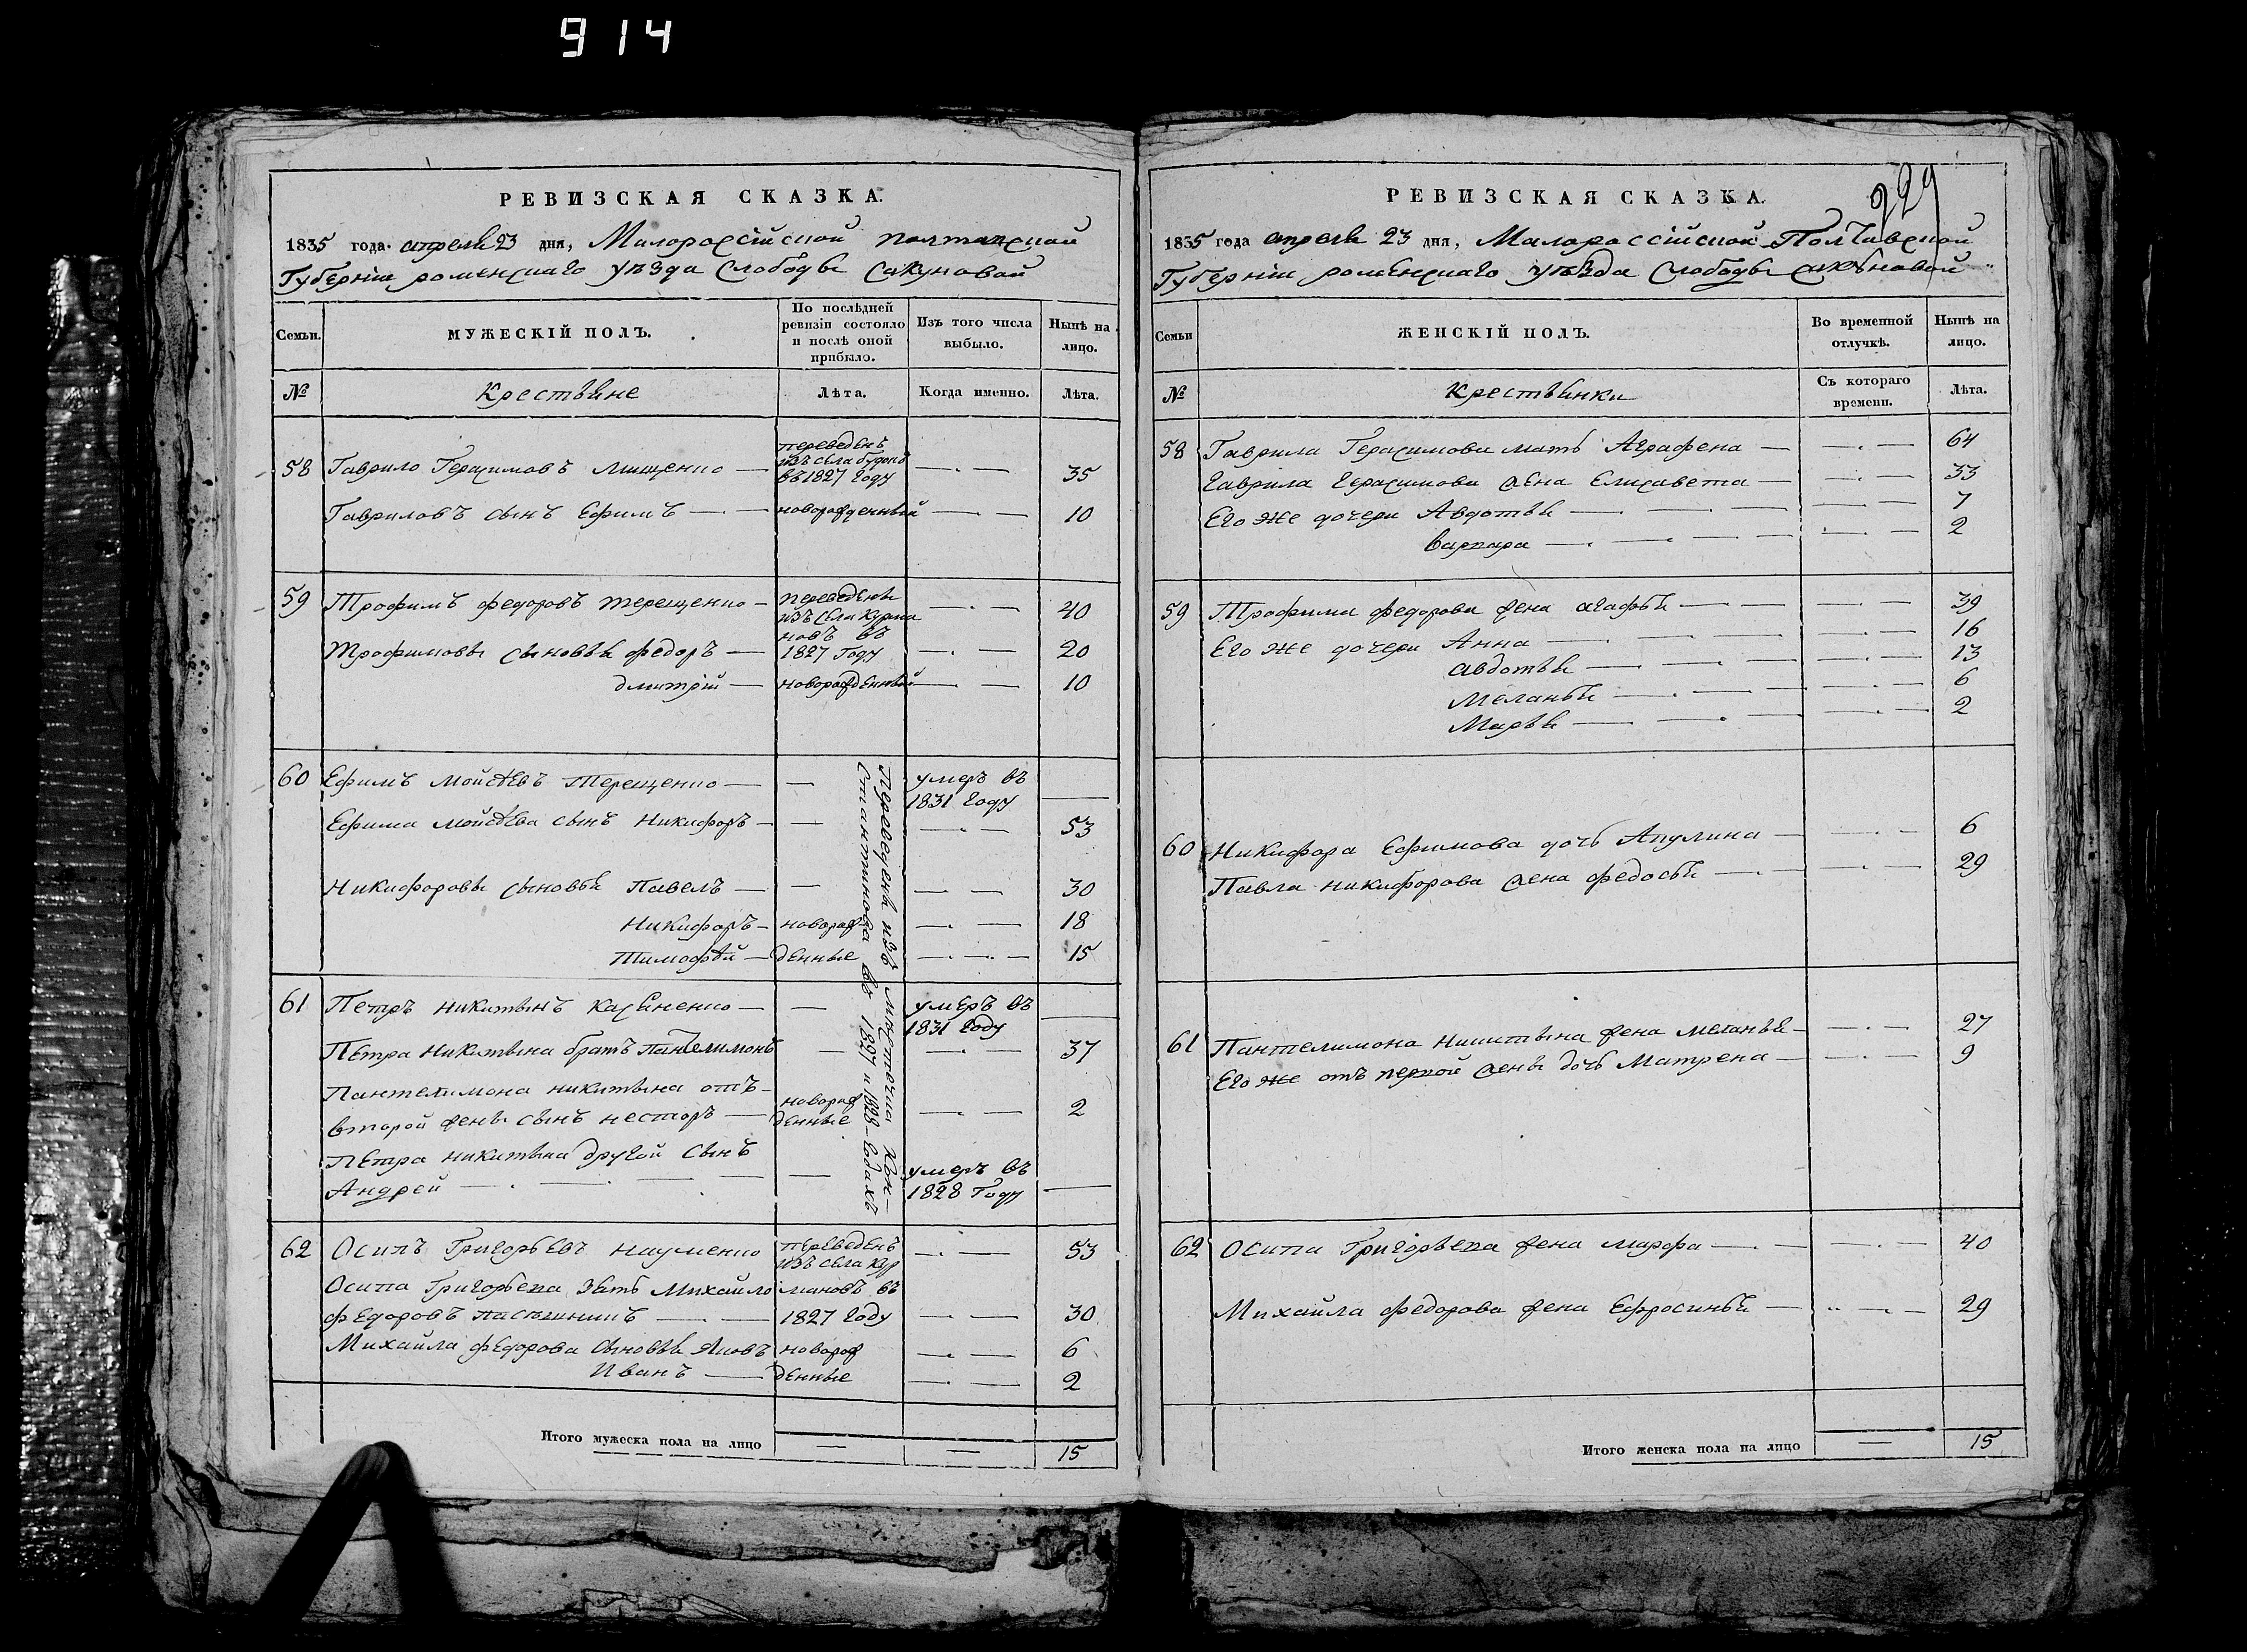 914
РЕВИЗСКАЯ СКАЗКА.
1835 года апреля 23 дня, Малороссійской полтавской
Губерніи роменскаго уѣзда слободы Сакуновой
Семьи.
МУЖЕСКІЙ ПОЛЪ.
По послѣдней
ревизіи состояло
и послѣ оной
прибыло.
Изъ того числа
выбыло.
Нынѣ на
лицо.
№
Крестьяне
Лѣта.
Когда именно.
Лѣта.
58 Гаврило Герасимовъ
переведенъ
изъ села
въ 1827 году
35
Гавриловъ сынъ Ефимъ новорожденный 10
59 Трофимъ федоровъ терещенко
переведены
изъ села Курма
новъ въ
1827 Году
40
Трофимовы сыновья федоръ 20
дмитрій новорожденный 10
60 Ефимъ Мойсѣевъ Терещенко умеръ въ
1831 Году
Ефима мойсѣева сынъ Никифоръ 53
Никифоровы сыновья Павелъ 30
Никифоръ новорож 18
Тимофѣй денные 15
Переведены изъ мѣстечка Кон-
стантинова въ 1827 и 1828 годахъ
61 Петръ никитинъ умеръ въ
1831 Году
Петра Никитина братъ Пантелимонъ 37
Пантелимона никитина отъ
второй жены сынъ несторъ новорож
денные 2
Петра никитина другой Сынъ
Андрей умеръ въ
1828 Году
62 Осипъ Григорьевъ науменко переведенъ
изъ села Кур 53
Осипа Григорьева Зять Михайло мановъ въ
федоровъ 1827 Году 30
Михайла федорова сыновья Яковъ новорож 6
Иванъ денные 2
Итого мужеска пола на лицо 15
РЕВИЗСКАЯ СКАЗКА.
229
1835 года апреля 23 дня, Малороссійской Полтавской
Губерніи роменскаго уѣзда слободы сакуновой
Семьи
ЖЕНСКІЙ ПОЛЪ.
Во временной
отлучкѣ.
Нынѣ на
лицо.
№
Крестьянки
Съ котораго
времени.
Лѣта.
58 Гаврила Герасимова мать Аграфена 64
Гаврила Герасимова жена Елисавета 33
Его же дочери Авдотья 7
варвара 2
59 Трофима федорова жена агафья 39
Его же дочери Анна 16
авдотья 13
Меланья 6
Марья 2
60 Никифора Ефимова дочь Акулина 6
Павла никифорова жена федосья 29
61 Пантелимона никитина жена меланья 27
Его же отъ первой жены дочь Матрена 9
62 Осипа Григорьева жена марфа 40
Михайла федорова жена Ефросинья 29
Итого женска пола на лицо 15